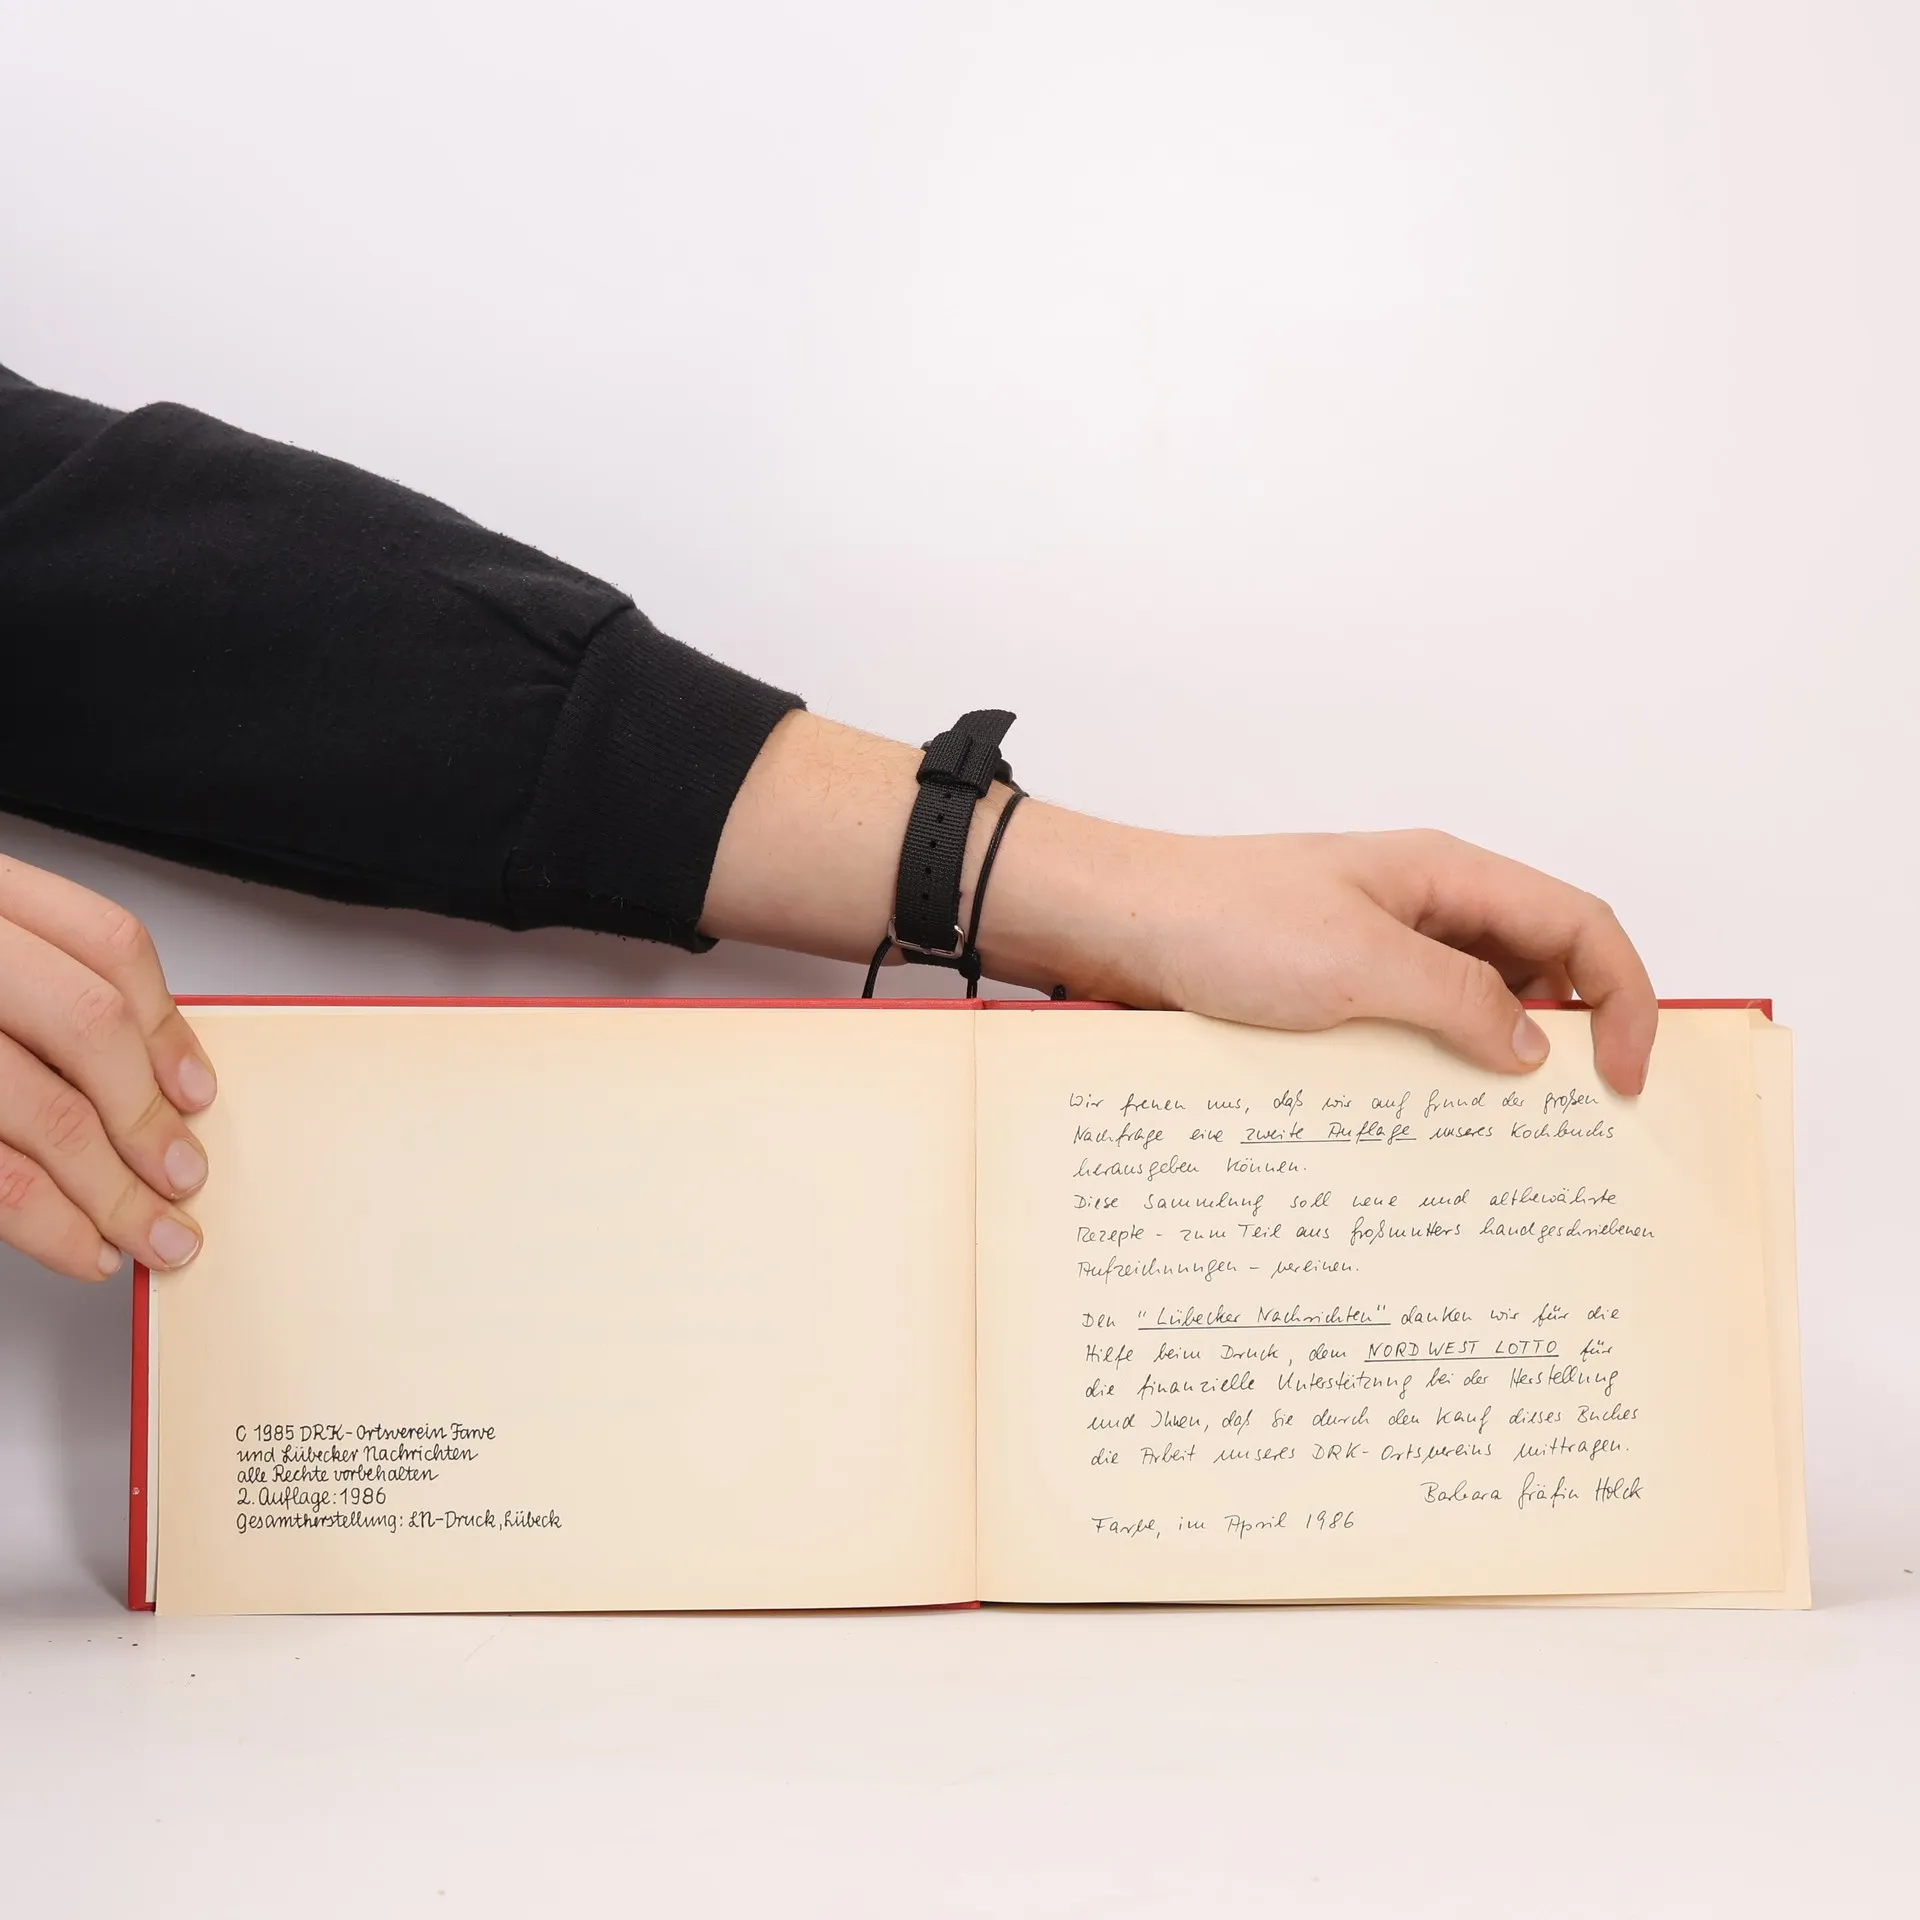 C 1985 DRK-Ortsverein Farve
und Lübecker Nachrichten
alle Rechte vorbehalten
2. Auflage: 1986
Gesamtherstellung: LN-Druck, Lübeck
Wir freuen uns, daß wir auf Grund der großen
Nachfrage eine zweite Auflage unseres Kochbuchs
herausgeben können.
Diese Sammlung soll neue und altbewährte
Rezepte - zum Teil aus Großmutters handgeschriebenen
Aufzeichnungen - vereinen.
Den "Lübecker Nachrichten" danken wir für die
Hilfe beim Druck, dem NORD WEST LOTTO für
die finanzielle Unterstützung bei der Herstellung
und Ihnen, daß Sie durch den Kauf dieses Buches
die Arbeit unseres DRK-Ortsvereins mittragen.
Barbara Gräfin Holck
Farve, im April 1986